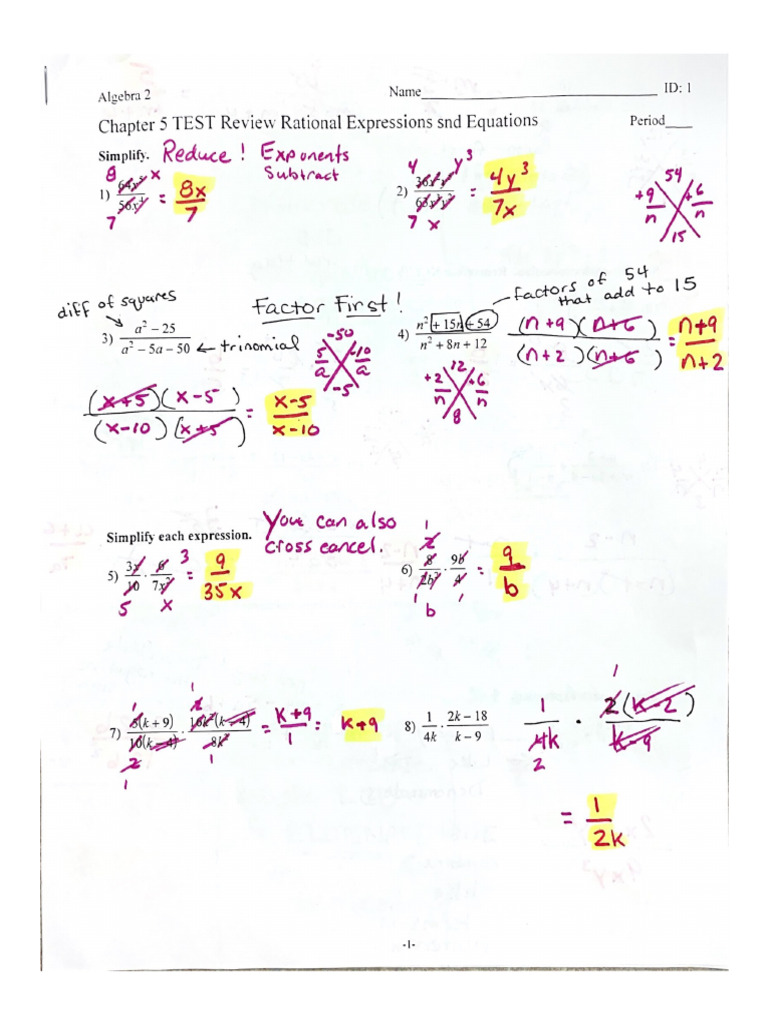 Algebra 2 Name____________________ ID: 1
Chapter 5 TEST Review Rational Expressions snd Equations Period____
Simplify. Reduce! Exponents Subtract
8 x
1) 64x⁵/56x⁴ = 8x/7
7
4 y³
2) = 4y³/7x
7 x
54
+9/n +6/n
15
diff of squares
Factor First!
factors of 54
that add to 15
3) a² – 25 / a² – 5a – 50 ← trinomial
-50
5/a -10/a
-5
(x+5)(x-5) / (x-10)(x+5) = x-5 / x-10
4) n² + 15n + 54 / n² + 8n + 12
(n+9)(n+6) / (n+2)(n+6) = n+9 / n+2
12
+2/n +6/n
8
Simplify each expression. You can also
cross cancel.
3
5) 3x/10 · 6/7x² = 9/35x
5 x
1
2
6) 8/2b² · 9b/4 = 9/b
1 1
b
1 1 2
7) 5(k + 9)/10(k – 4) · 16k²(k – 4)/8k² = k+9/1 = k+9
2 1
1
8) 1/4k · 2k – 18 / k – 9
1
1/4k · 2(k-2)/k-9
2
= 1/2k
-1-